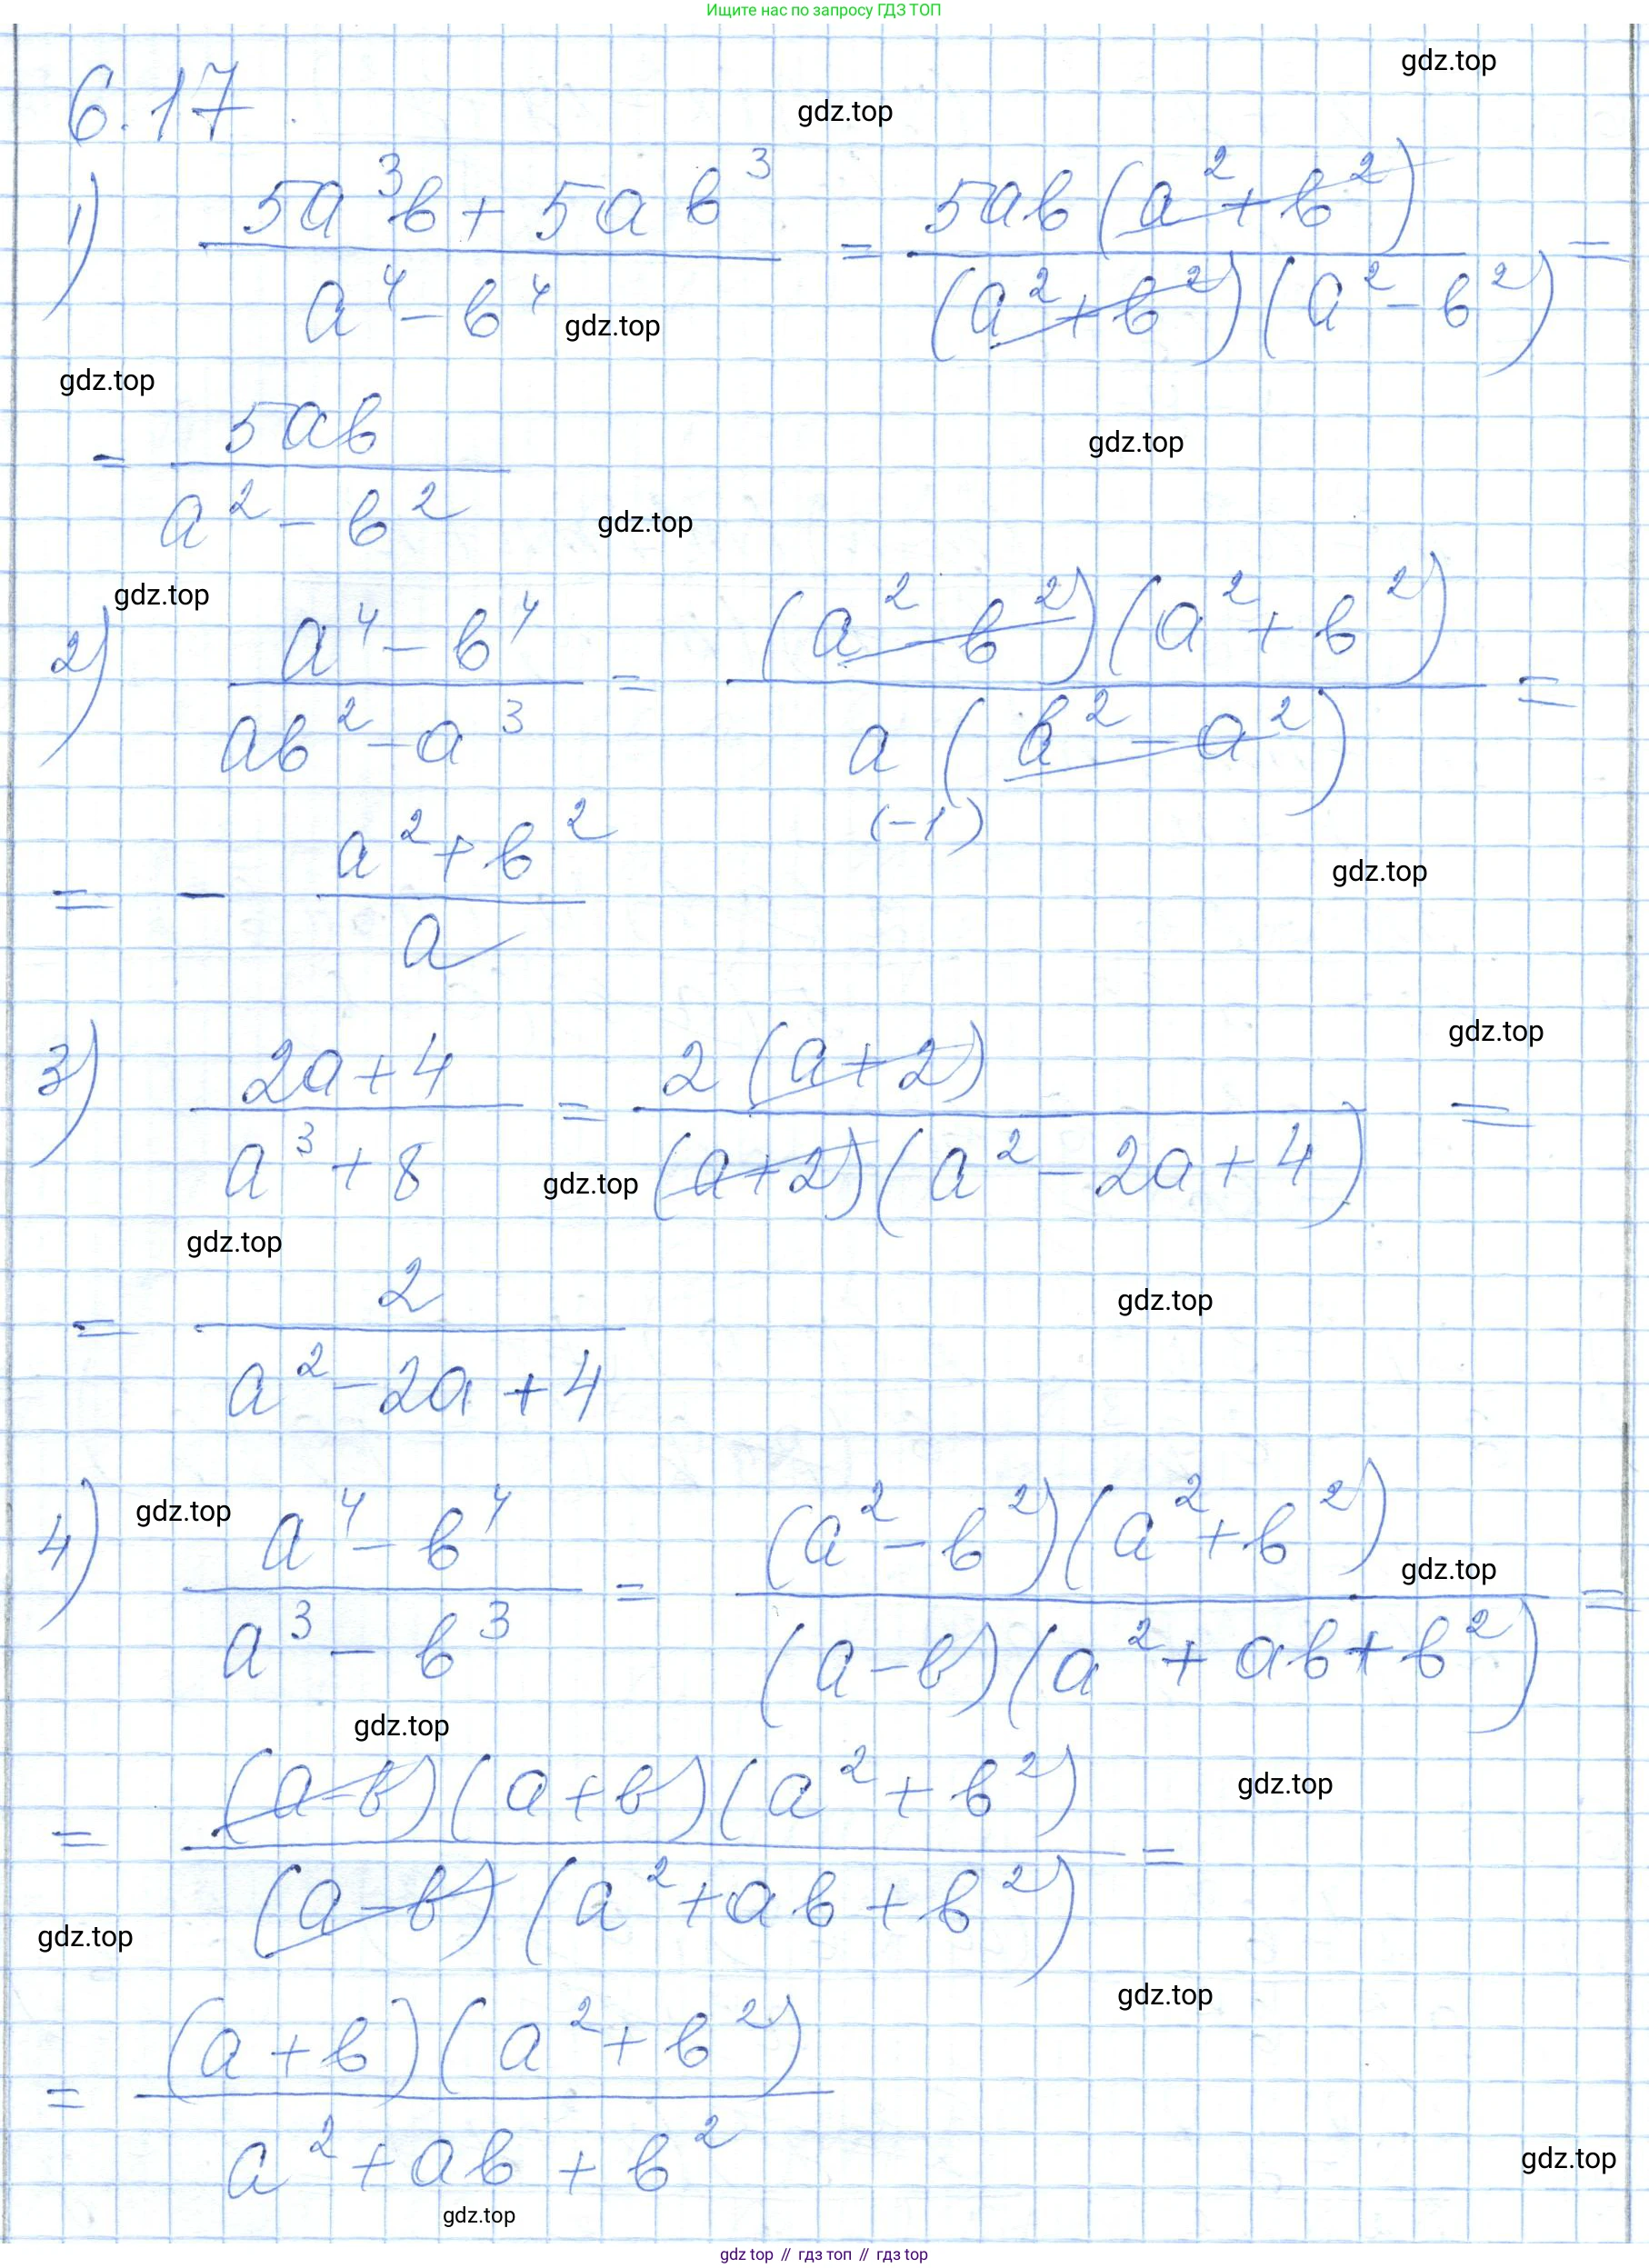 Ищите нас по запросу ГДЗ ТОП
gdz.top
6.17
gdz.top
1) (5a³b + 5ab³)/(a⁴ - b⁴) = (5ab(a² + b²))/((a² + b²)(a² - b²)) =
gdz.top
gdz.top
= 5ab/(a² - b²)
gdz.top
gdz.top
gdz.top
2) (a⁴ - b⁴)/(ab² - a³) = ((a² - b²)(a² + b²))/(a(b² - a²)) =
(-1)
= - (a² + b²)/a
gdz.top
gdz.top
3) (2a + 4)/(a³ + 8) = (2(a + 2))/((a + 2)(a² - 2a + 4)) =
gdz.top
gdz.top
gdz.top
= 2/(a² - 2a + 4)
gdz.top
4) (a⁴ - b⁴)/(a³ - b³) = ((a² - b²)(a² + b²))/((a - b)(a² + ab + b²)) =
gdz.top
gdz.top
gdz.top
= ((a - b)(a + b)(a² + b²))/((a - b)(a² + ab + b²)) =
gdz.top
gdz.top
= ((a + b)(a² + b²))/(a² + ab + b²)
gdz.top
gdz.top
gdz top // гдз топ // гдз top